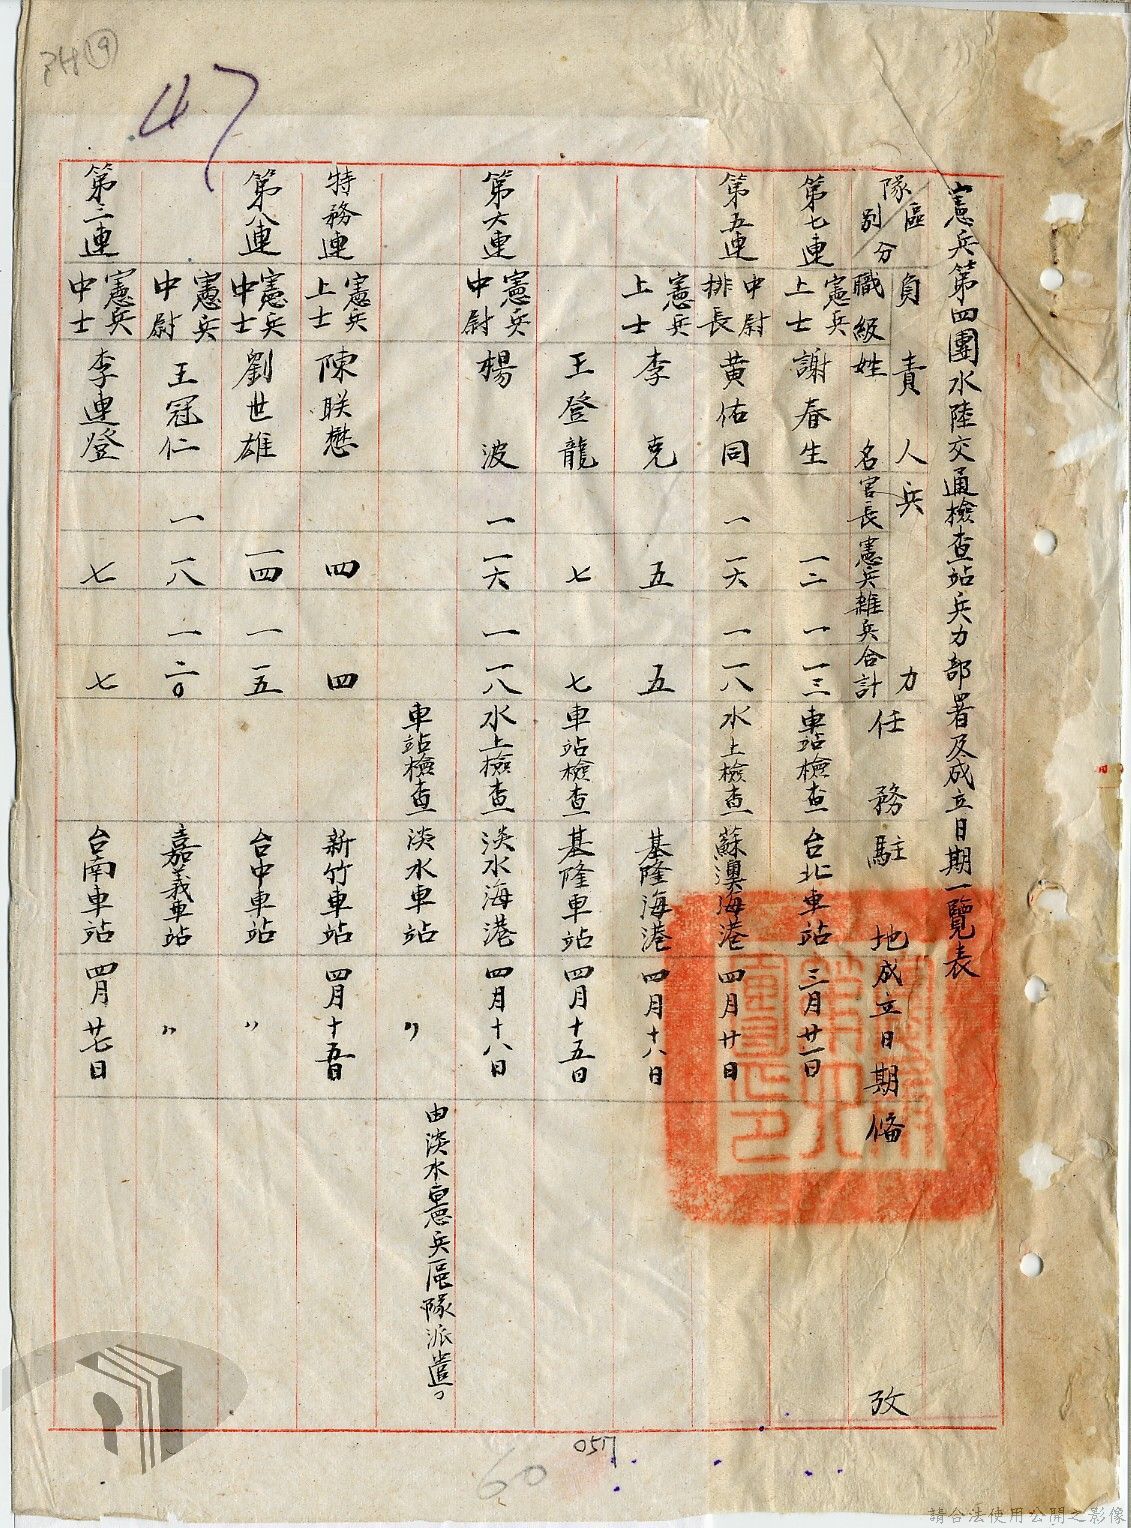 憲兵第四團水陸交通檢查站兵力部署及成立日期一覽表
區分 隊別 負責人 職級 姓名 兵力 官長 憲兵 雜兵 合計 任務 駐地 成立日期 備攷
第七連 憲兵上士 謝春生 一二 一 一三 車站檢查 台北車站 三月廿一日
第五連 中尉排長 黃佑同 一 一六 一 一八 水上檢查 蘇澳海港 四月廿日
憲兵上士 李克 五 五 基隆海港 四月十八日
王登龍 七 七 車站檢查 基隆車站 四月十五日
第六連 憲兵中尉 楊波 一 一六 一 一八 水上檢查 淡水海港 四月十八日
車站檢查 淡水車站 〃 由淡水憲兵區隊派遣。
特務連 憲兵上士 陳联懋 四 四 新竹車站 四月十五日
第八連 憲兵中士 劉世雄 一四 一 一五 台中車站 〃
憲兵中尉 王冠仁 一 一八 一 二〇 嘉義車站 〃
第三連 憲兵中士 李連登 七 七 台南車站 四月廿七日
47
19
057
60
請合法使用公開之影像